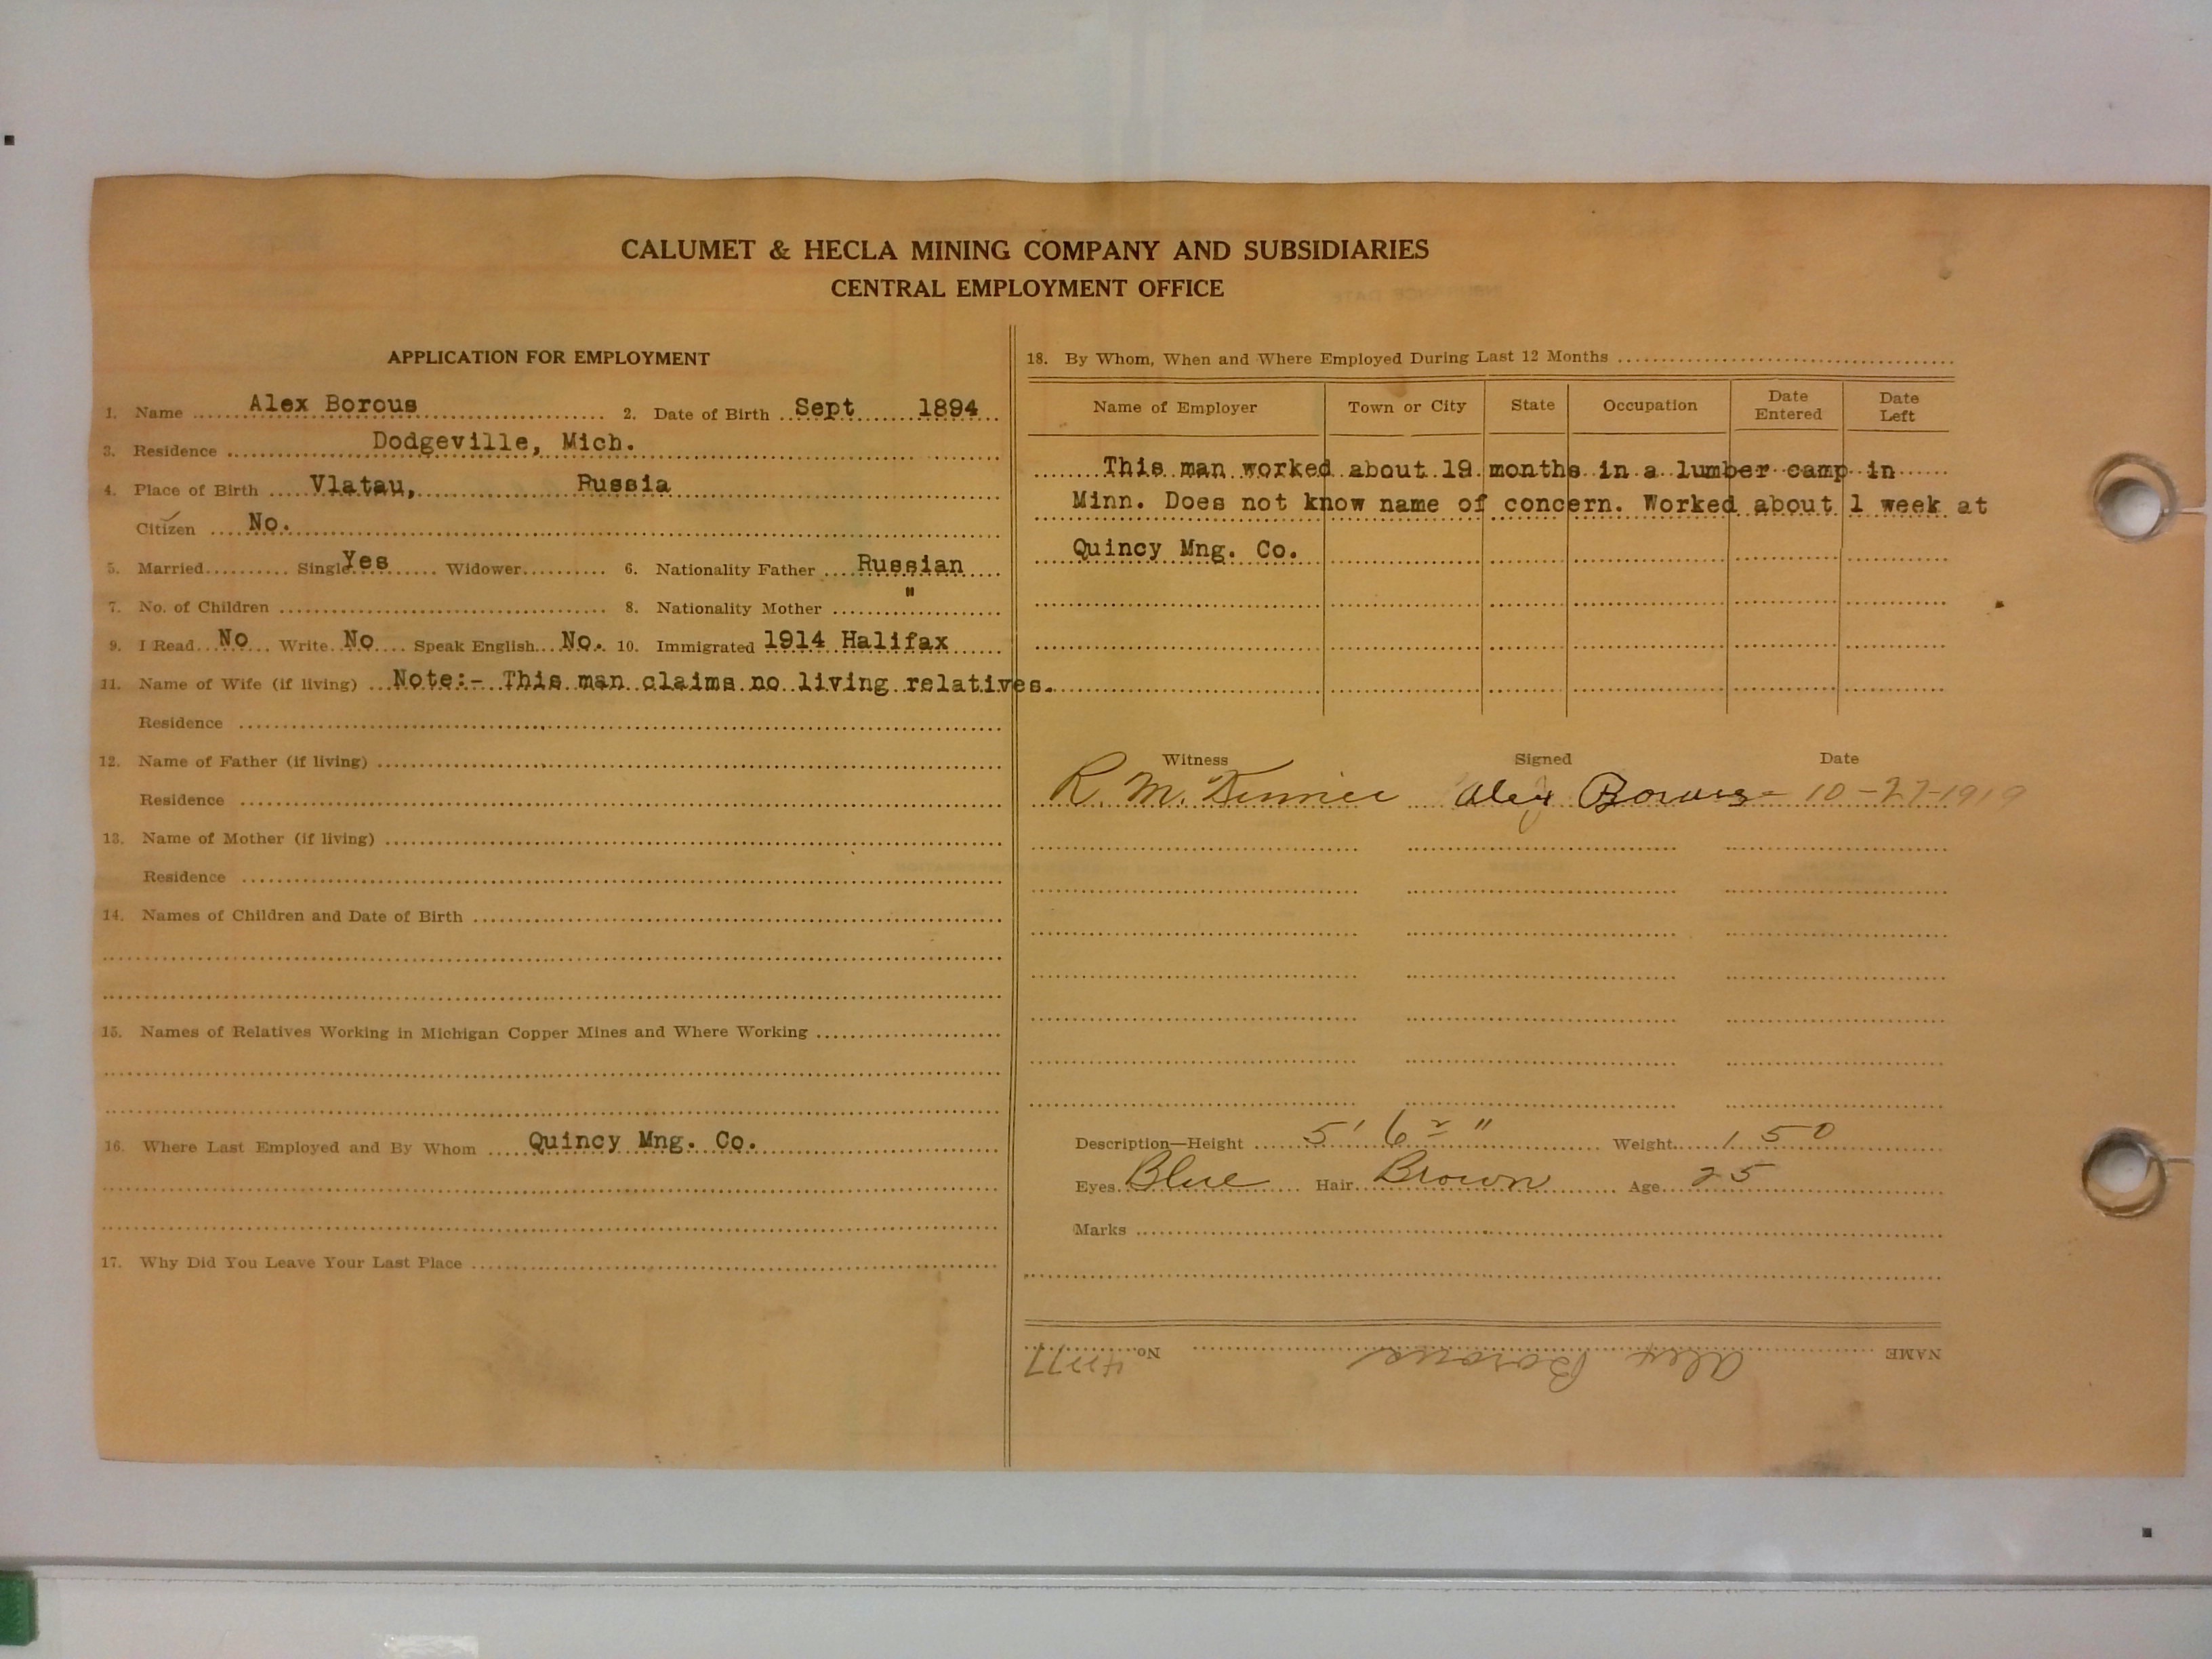 CALUMET & HECLA MINING COMPANY AND SUBSIDIARIES
CENTRAL EMPLOYMENT OFFICE
APPLICATION FOR EMPLOYMENT
1. Name Alex Borous 2. Date of Birth Sept 1894
3. Residence Dodgeville, Mich.
4. Place of Birth Vlatau, Russia
Citizen No.
5. Married Single Yes Widower 6. Nationality Father Russian
7. No. of Children 8. Nationality Mother "
9. I Read No Write No Speak English No. 10. Immigrated 1914 Halifax
11. Name of Wife (if living) Note:- This man claims no living relatives.
Residence
12. Name of Father (if living)
Residence
13. Name of Mother (if living)
Residence
14. Names of Children and Date of Birth
15. Names of Relatives Working in Michigan Copper Mines and Where Working
16. Where Last Employed and By Whom Quincy Mng. Co.
17. Why Did You Leave Your Last Place
18. By Whom, When and Where Employed During Last 12 Months
Name of Employer Town or City State Occupation Date Entered Date Left
This man worked about 19 months in a lumber camp in
Minn. Does not know name of concern. Worked about 1 week at
Quincy Mng. Co.
Witness Signed Date
R. M. Alex Borous 10-27-1919
Description—Height 5' 6 " Weight 150
Eyes Blue Hair Brown Age 25
Marks
NAME Alex Borous No.